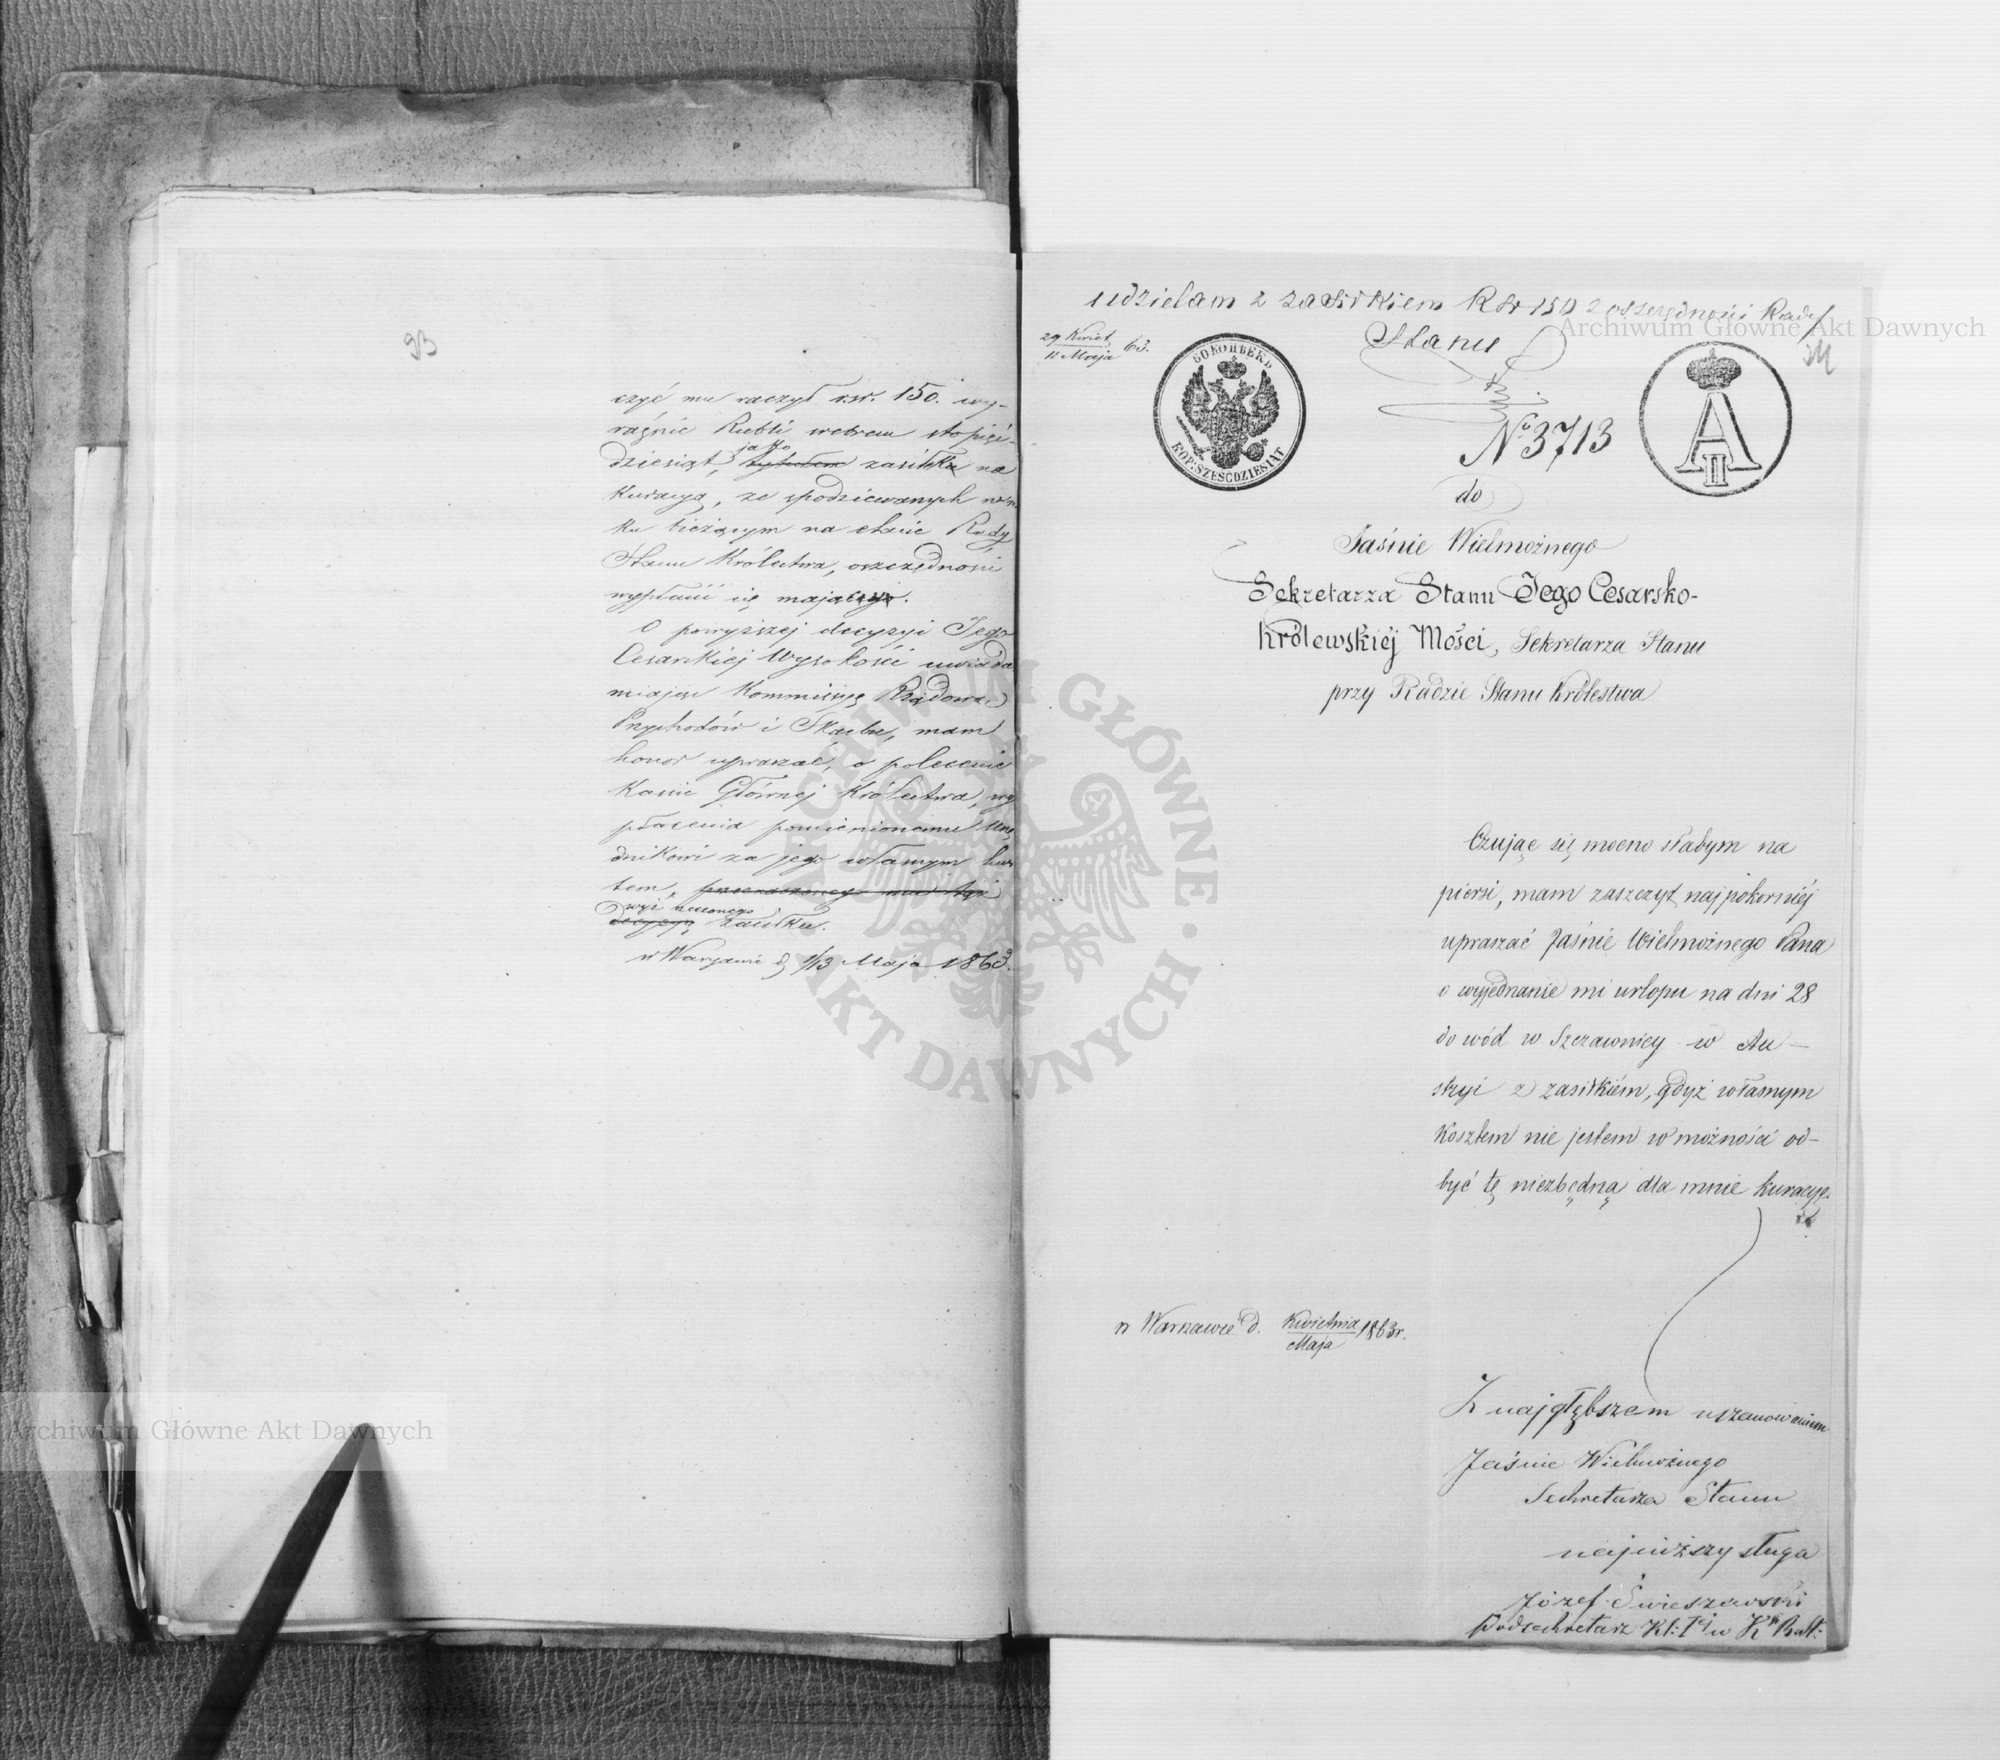 93
czyć mu raczył rsr. 150. wy-
raźnie Rubli srebrem sto pięć-
dziesiąt, jako tytułem zasiłku na
Kuracyą, ze spodziewanych w ro-
ku bieżącym na etacie Rady
Stanu Królestwa, oszczędności
wypłacić się mający.
O powyższej decyzyi Jego
Cesarskiej Wysokości uwiada
miając Kommissyę Rządową
Przychodów i Skarbu, mam
honor upraszać, o polecenie
Kassie Głównej Królestwa, wy
płacenia pomienionemu Urzę
dnikowi za jego własnym kwi
tem,
wyż rzeczonego
decyzyą zasiłku.
w Warszawie d. 1/13 Maja 1863.
udzielam z zasiłkiem Rsr 150 z oszczędności Rady
Stanu
29 Kwiet. 63.
11 Maja
60 КОПѢЕКЪ
KOP: SZEŚĆDZIESIĄT
A II
No 3713
do
Jaśnie Wielmożnego
Sekretarza Stanu Jego Cesarsko-
Królewskiéj Mości, Sekretarza Stanu
przy Radzie Stanu Królestwa
Czując się mocno słabym na
piersi, mam zaszczyt najpokorniéj
upraszać Jaśnie Wielmożnego Pana
o wyjednanie mi urlopu na dni 28
do wód w Szczawnicy w Au-
stryi z zasiłkiém, gdyż własnym
Kosztem nie jestem w możności od-
być tę niezbędną dla mnie kuracyę.
w Warszawie d. Kwietnia 1863r.
Maja
Z najgłębszem uszanowaniem
Jaśnie Wielmożnego
Sekretarza Stanu
najniższy sługa
Józef Świeszewski
Podsekretarz Kl: I ej w
Archiwum Główne Akt Dawnych
Archiwum Główne Akt Dawnych
ARCHIWUM GŁÓWNE AKT DAWNYCH